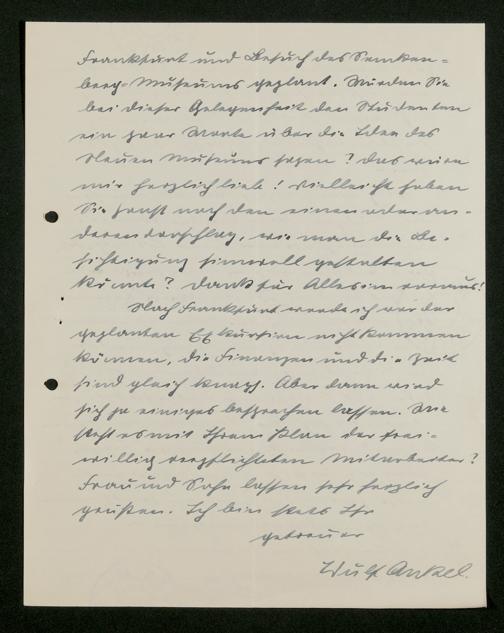 Frankfurt und Besuch des Sencken=
berg-Museums geplant. Würden Sie
bei dieser Gelegenheit den Studenten
ein paar Worte über die Idee des
Neuen Museums sagen? Das wäre
mir herzlich lieb! Vielleicht haben
Sie sonst noch den einen oder an-
deren Vorschlag, wie man die Be-
sichtigung sinnvoll gestalten
könnte? Dank für Alles im voraus!
Nach Frankfurt werde ich vor der
geplanten Exkursion nicht kommen
können, die Finanzen und die Zeit
sind gleich knapp. Aber dann wird
sich ja einiges besprechen lassen. Wie
steht es mit Ihrem Plan der frei-
willig verpflichteten Mitarbeiter?
Frau und Sohn lassen sehr herzlich
grüßen. Ich bin stets Ihr
getreuer
Wulf Ankel.